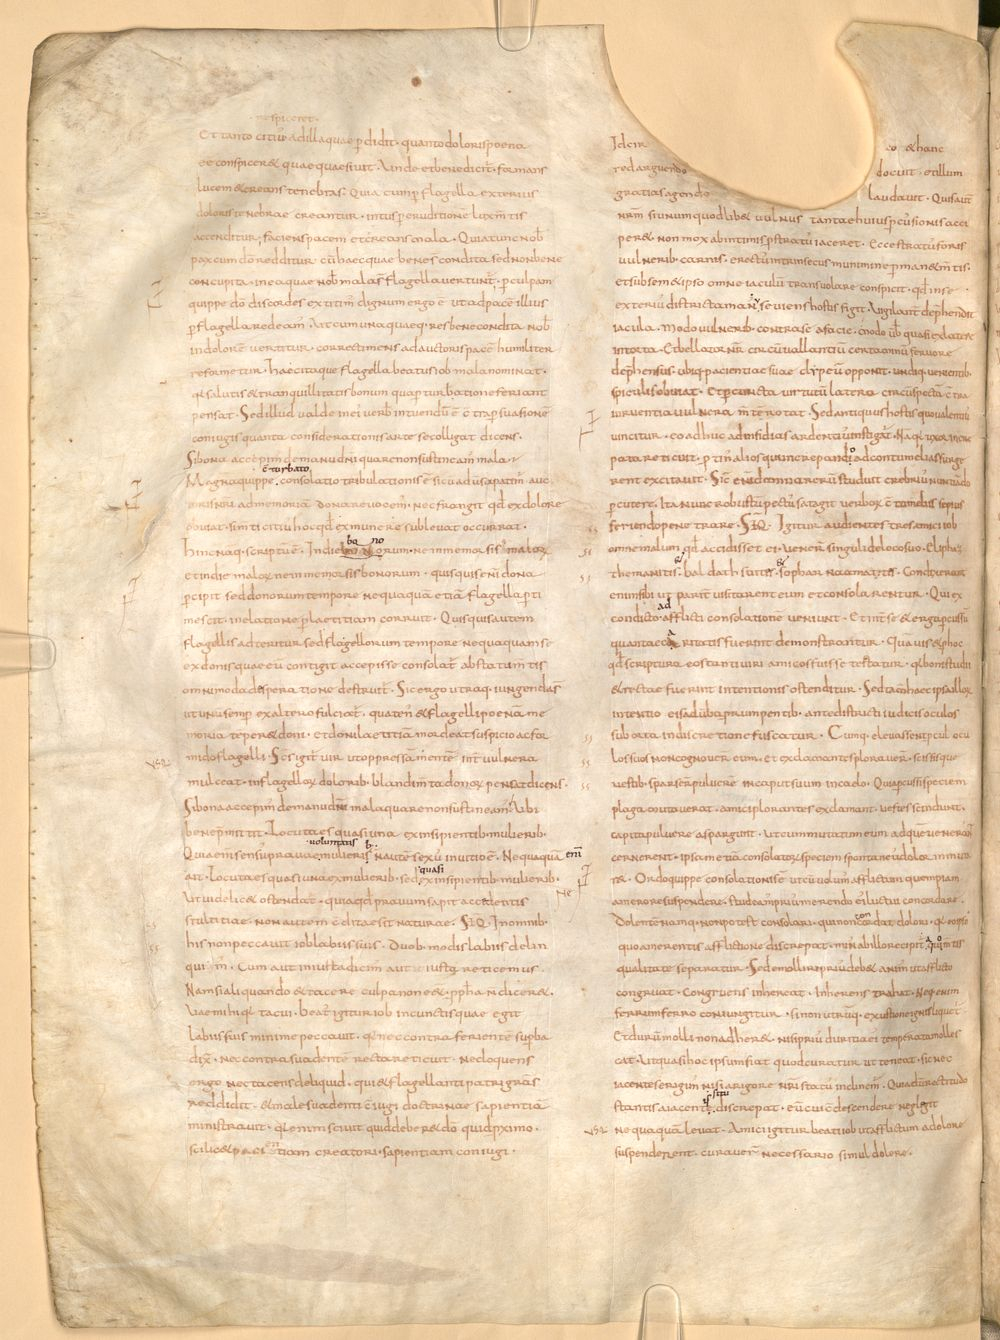 respiceret
Et tanto citius ad illa quae pdidit · quanto doloris poena
ee conspiceret quae quaesiuit · Unde et benedicit̄ · formans
lucem & creans tenebras · Quia cum p flagella exterius
doloris tenebrae creantur · intus p eruditionē lux m̄tis
accenditur ; faciens pacem et creans mala · Quia tunc nob̄
pax cum dō redditur cū haec quae bene s̄ condita sed non bene
concupita · in ea quae nob̄ mala s̄ flagella uertunt̄ · p culpam
quippe dō discordes extitim̄ dignum ergo ē ut ad pacē illius
p flagella redeam̄ · Ut cum unaquaeq; res bene condita nob̄
in dolorē uertitur · correcti mens ad auctoris pacē humiliter
reformetur · Haec itaque flagella beatus iob mala nominat ·
q̄ salutis & tranquillitatis bonum qua pturbatione feriant
pensat · Sed illud ualde in ei uerb̄ intuendū ē
coniugis quanta considerationis arte se colligat dicens ·
Si bona accepim̄ de manu dn̄i quare non sustineam̄ mala ·
ē turbato
Magna quippe consolatio tribulationis ē
doris nr̄i ad memoriā dona reuocem̄ · Nec frangit qd̄ ex dolore
obuiat · si m̄ti citius hoc qd̄ ex munere subleuat occurrat ·
bo no
Hinc naq; scriptū ē · In die norum · ne inmemor sis malorx̄
et in die malorx̄ ne inmemor sis bonorum · quisquis eni dona
pcipit sed donorum tempore nequaquā etiā flagella pti
mescit · in elatione p laetitiam corruit · Quisquis autem
flagellis adteritur sed flagellorum tempore nequaquam se
ex donis quae eū contigit accepisse consolat̄ · ab statu m̄tis
omnimoda desperatione destruit̄ · Sic ergo utraq; iungenda s̄
ut unū semp ex altero fulciat̄ · quaten & flagelli poenā me
moria temperet doni · et doni laetitiā mordeat suspicio ac for
mido flagelli · Scs̄ igit uir ut oppressā mentē int̄ uulnera
mulceat · in flagellorx̄ dolorib · blandim̄ta donorx̄ pensat dicens ·
Si bona accepim̄ de manu dn̄i mala quare non sustineam̄ Ubi
bene pmittit · Locuta es quasi una ex insipientib · mulierib ·
uoluntatis
Quia enī sensus praua mulieris n̄ autē sexū in uitio ē · Nequaquā enī
quasi
ait · Locuta es quasi una ex mulierib · sed ex insipientib · mulierib ·
Ut uidelic & ostendat̄ · quia qd̄ prauum sapit accedentis
stultitiae · non autem c̄ditae sit naturae · SEQ · In omnib ·
his non peccauit iob labiis suis · Duob modis labiis delin
quim̄ · Cum aut iniusta dicim̄ aut iusta reticemus ·
Nam si aliquando & tacere culpa non eēt · ppha n̄ diceret ·
Uae mihi q̄ tacui · Beat igitur iob in cunctis quae egit
labiis suis minime peccauit · q̄ nec contra ferientē supba
dix̄ · Nec contra suadentē recta reticuit · Nec loquens
ergo nec tacens deliquid · qui & flagellanti patri gra̅s
reddidit · & male suadenti c̄iugi doctrinae sapientiā
ministrauit · q̄ enim sciuit quid deberet dō quid pximo ·
scilic& pa ci en tiam creatori · sapientiam coniugi ·
Idcir co & hanc
redarguendo docuit · et illum
gratias agendo laudauit · Quis aut̄
nr̄m si unum quodlib& uulnus tantae huius pcussionis acci
per& non mox ab intimis pstratus iaceret · Ecce stratus foris
uulnerib · carnis · erectus intrinsecus munimine permanet m̄tis ·
et subsem&ipso omne iaculū transuolare conspicit · qd̄ in se
exterius districta manu seuiens hostis figit Uigilant dephendit
iacula · modo uulnerib · contra se a facie · modo ub̄ quasi ex latere
intorta · Et bellator nr̄ circūuallantiū certaminū feruore
dephensus · ubiq; pacientiae suae clypeū opponit · undiq; uenientib ·
spiculis obuiat · Et p cuncta uirtutū latera circūspecta c̄tra
iruentia uulnera m̄te rotat · Sed antiquus hostis quo ualentius
uincitur · eo adhuc ad insidias ardentius instigat̄ · Naq; uxor incre
pata reticuit · ptin alios qui increpando ad contumelias surge
rent excitauit · Sic enī dāmnarē studuit crebrius nuntiādo
pcutere · Ita nunc robustū pectus satagit uerborx̄ c̄tumeliis sepius
feriendo pene trare · SEQ · Igitur audientes tres amici iob
omne malum qd̄ accidisset ei · uener̄ singuli de loco suo · Eliphaz
themanitis · baldath suites · & sophar naamatites · Condixerant
enim sibi ut parit̄ uisitarent eum et consolarentur · Qui ex
ad
condicto afflicti consolatione ueniunt · Et int̄ se & erga pcussū
quanta caritatis fuerint demonstrantur · Qua uis & p hoc
qd̄ scriptura eos tanti uiri amicos fuisse testatur · q̄ boni studii
& rectae fuerint intentionis ostenditur · Sed tam̄ haec ipsa illorx̄
intentio eis ad ūba prumpentib · ante districti iudicis oculos
suborta indiscretione fuscatur · Cumq; eleuassent pcul ocu
los suos non cognouer̄ eum · et exclamantes plorauer̄ · scissisque
uestib · sparser̄ puluerē in caput suum in caelo · Quia pcussi speciem
plaga mutauerat · amici plorantes exclamant · uestes scindunt ·
capita puluere aspargunt · Ut cum mutatum eum ad quē uenerant
cernerent · ipsam etiā consolatorx̄ speciem spontaneus dolor inmuta
ret · Ordo quippe consolationis ē ut cū uolum̄ afflictum quempiam
a merore suspendere · studeam̄ prius merendo eius luctui concordare ·
con
Dolentē namq; non potest consolari · qui non cordat dolori · Qr̄ eo ipso
quo a merentis afflictione discrepat · min ab illo recipit̄ a quo m̄tis
qualitate separatur · Sed emolliri prius debet anim ut afflicto
congruat · Congruens inhereat · Inherens trahat · Neq; enim
ferrum ferro coniungitur · si non utrūq; exustione ignis liquet̄ ·
Et durū molli non adher& · nisi prius duritia ei temperata molles
cat · Ut quasi hoc ipsum fiat quod curatur ut teneat · sic nec
iacentes erigim̄ nisi a rigore nr̄i status inclinem̄ · Qua dū rectitudo
stantis a iacentis situ discrepat · eū cui c̄descendere neglegit
nequaquā leuat · Amici igitur beati iob ut afflictum a dolore
suspenderent · curauer̄ necessario simul dolere ·